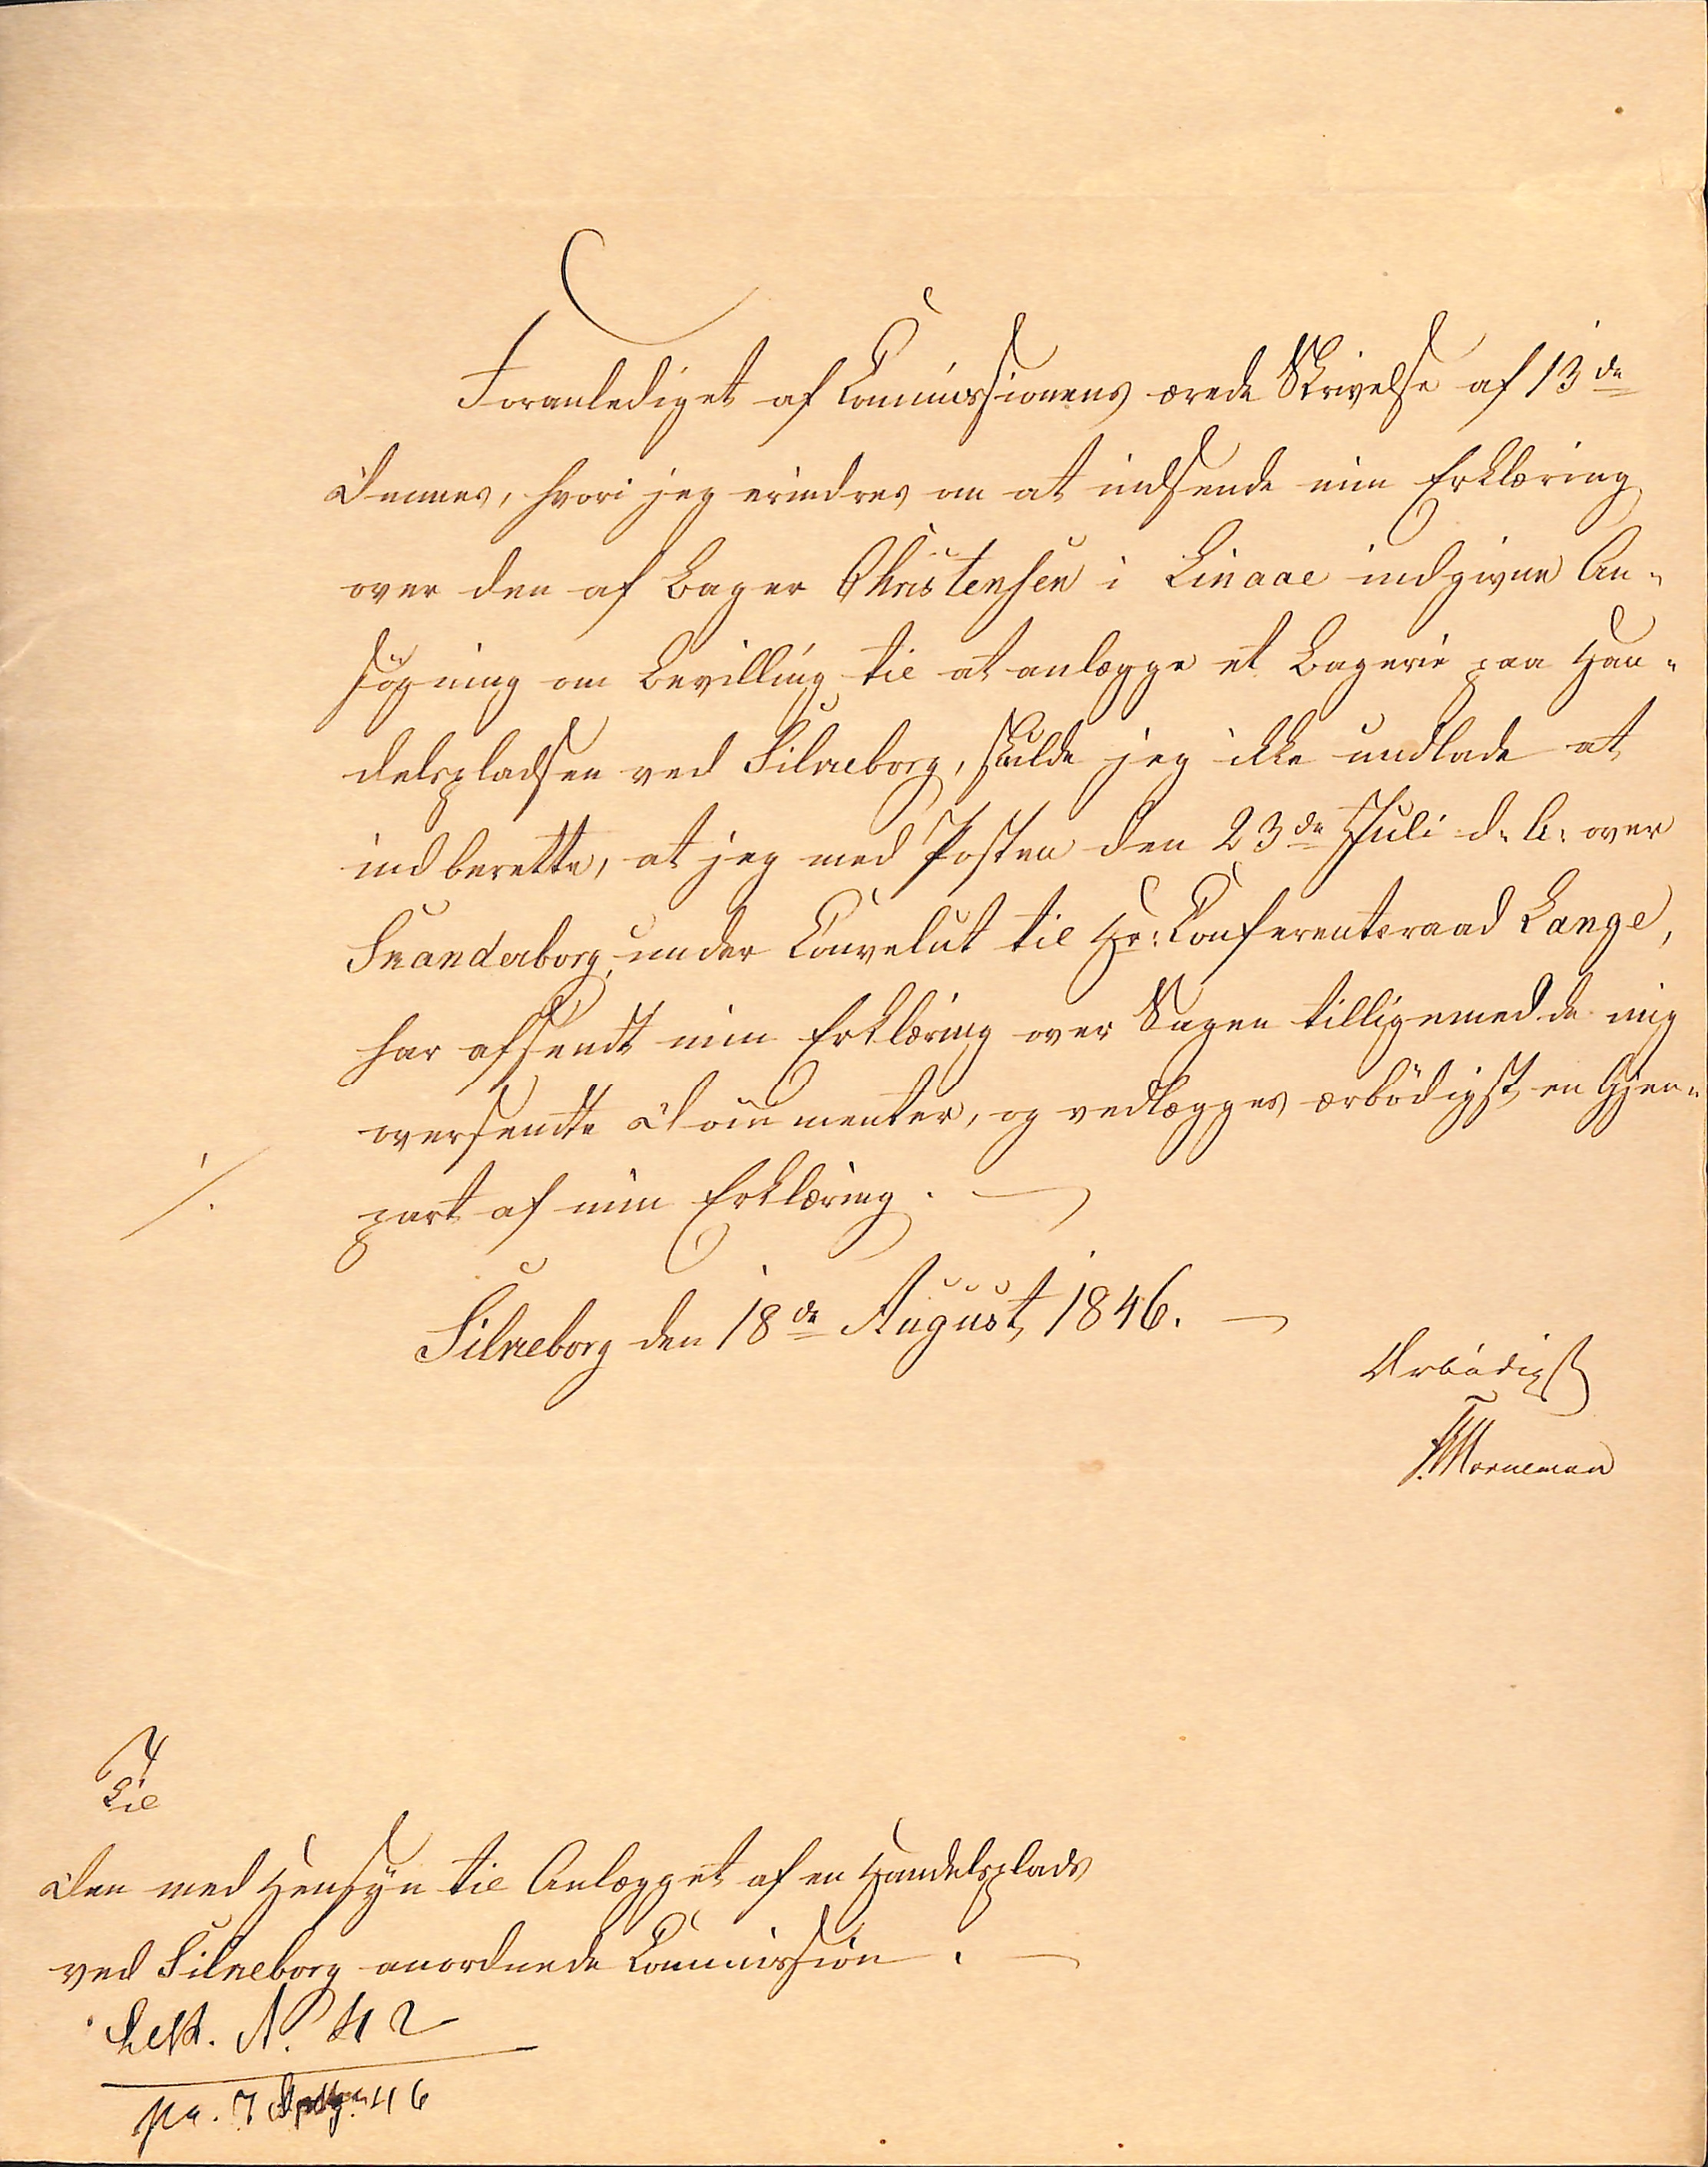 Foranlediget af Commissionens ærede Skrivelse af 13de
Dennes, hvori jeg erindres om at indsende min Erklæring
over den af Bager Christensen i Linaae indgivne An-
søgning om Bevilling til at anlægge et Bagerie paa Han-
delspladsen ved Silkeborg, skulde jeg ikke undlade at
indberette, at jeg med Posten den 23de Juli d: A: over
Skanderborg, under Couvelut til Hr: Conferentsraad Lange,
har afsendt min Erklæring over Sagen tilligemed de mig
oversendte Documenter, og vedlægges ærbødigst en Gjen-
./. part af min Erklæring. —
Silkeborg den 18de August 1846. —
Ærbødigst
Til
Den med Hensyn til Anlægget af en Handelsplads
ved Silkeborg anordnede Commission. —
N. 42
pr. 7 46